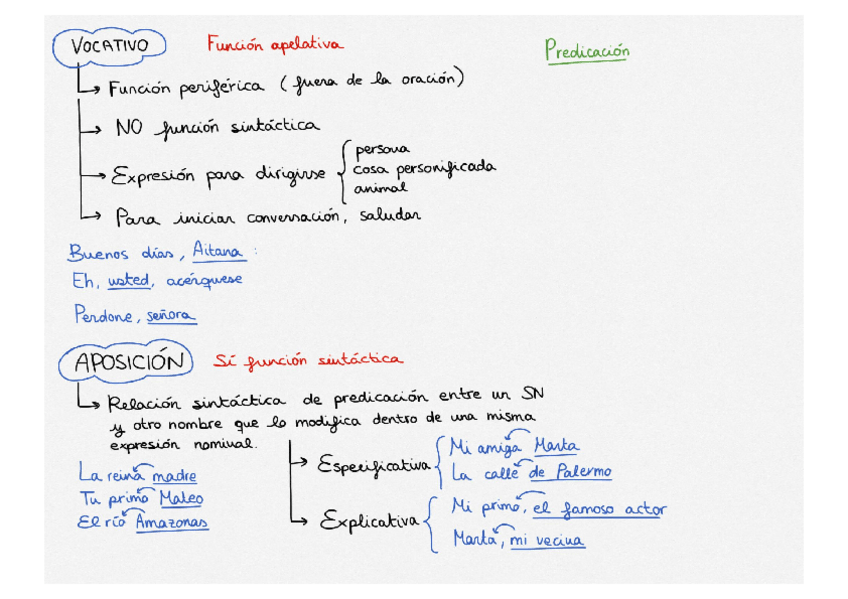 VOCATIVO Función apelativa Predicación
Función periférica (fuera de la oración)
NO función sintáctica
Expresión para dirigirse { persona
cosa personificada
animal
Para iniciar conversación, saludar
Buenos días, Aitana :
Eh, usted, acérquese
Perdone, señora
APOSICIÓN Sí función sintáctica
Relación sintáctica de predicación entre un SN
y otro nombre que lo modifica dentro de una misma
expresión nominal.
Especificativa { Mi amiga Marta
La calle de Palermo
La reina madre
Tu primo Mateo
El río Amazonas
Explicativa { Mi primo, el famoso actor
Marta, mi vecina